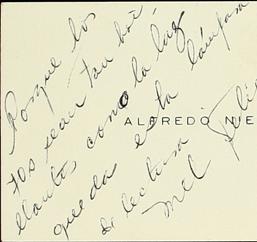 Porque los
tos sean tan bri
llantes, como la luz
que da esta lámpara
de lectura
Mil Feli
ALFREDO NIE